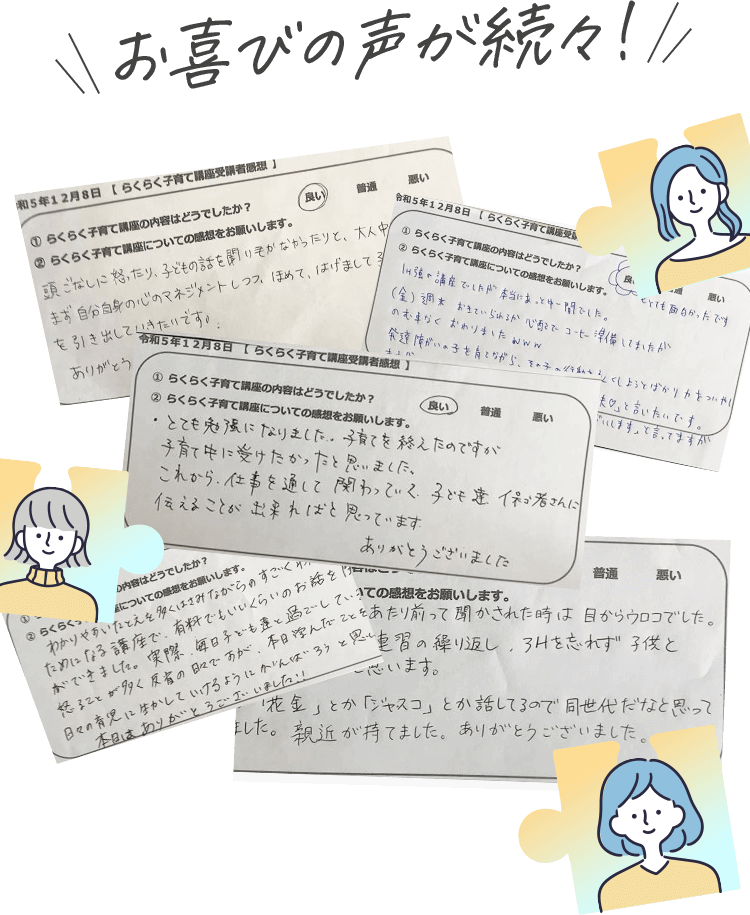 お喜びの声が続々!
和5年12月8日 【 らくらく子育て講座受講者感想 】
① らくらく子育て講座の内容はどうでしたか?
良い 普通 悪い
② らくらく子育て講座についての感想をお願いします。
頭ごなしに怒ったり、子どもの話を聞けてなかったりと、大人中
まず自分自身の心のマネジメントしつつ、ほめて、はげまして
を引き出していきたいです。
ありがとう
令和5年12月8日 【 らくらく子育て講座受講
① らくらく子育て講座の内容はどうでしたか?
普通 悪い
② らくらく子育て講座についての感想をお願いします。
とても面白かったです
1H強の講座でしたが本当にあっとゆー間でした。
(金) 週末 おきていられるか心配で コーヒー準備してましたが
の心配なく おわりました www
発達障がいの子を育てながら、
」と言いたいです。
します」と言ってますが
令和5年12月8日 【 らくらく子育て講座受講者感想 】
① らくらく子育て講座の内容はどうでしたか?
良い 普通 悪い
② らくらく子育て講座についての感想をお願いします。
・とても勉強になりました。子育てを終えたのですが
子育て中に受けたかったと思いました。
これから、仕事を通して関わっていく、子ども達 保ゴ者さんに
伝えることが出来ればと思っています
ありがとうございました
の内容はどうでしたか?
② らくらく
講座についての感想をお願いします。
わかりやすいたとえを多くはさみながらのすごく
ためになる講座で、有料でもいいぐらいのお話を
ができました。実際、毎日子ども達と過ごしてい
怒ることが多く反省の日々であが、本日学んだことを
日々の育児に生かしていけるようにがんばろうと思い
本日はありがとうございました!!
普通 悪い
いての感想をお願いします。
あたり前って聞かされた時は目からウロコでした。
練習の繰り返し、3Hを忘れず子供と
思います。
「花金」とか「ジャスコ」とか話してるので同世代だなと思って
ました。親近が持てました。ありがとうございました。